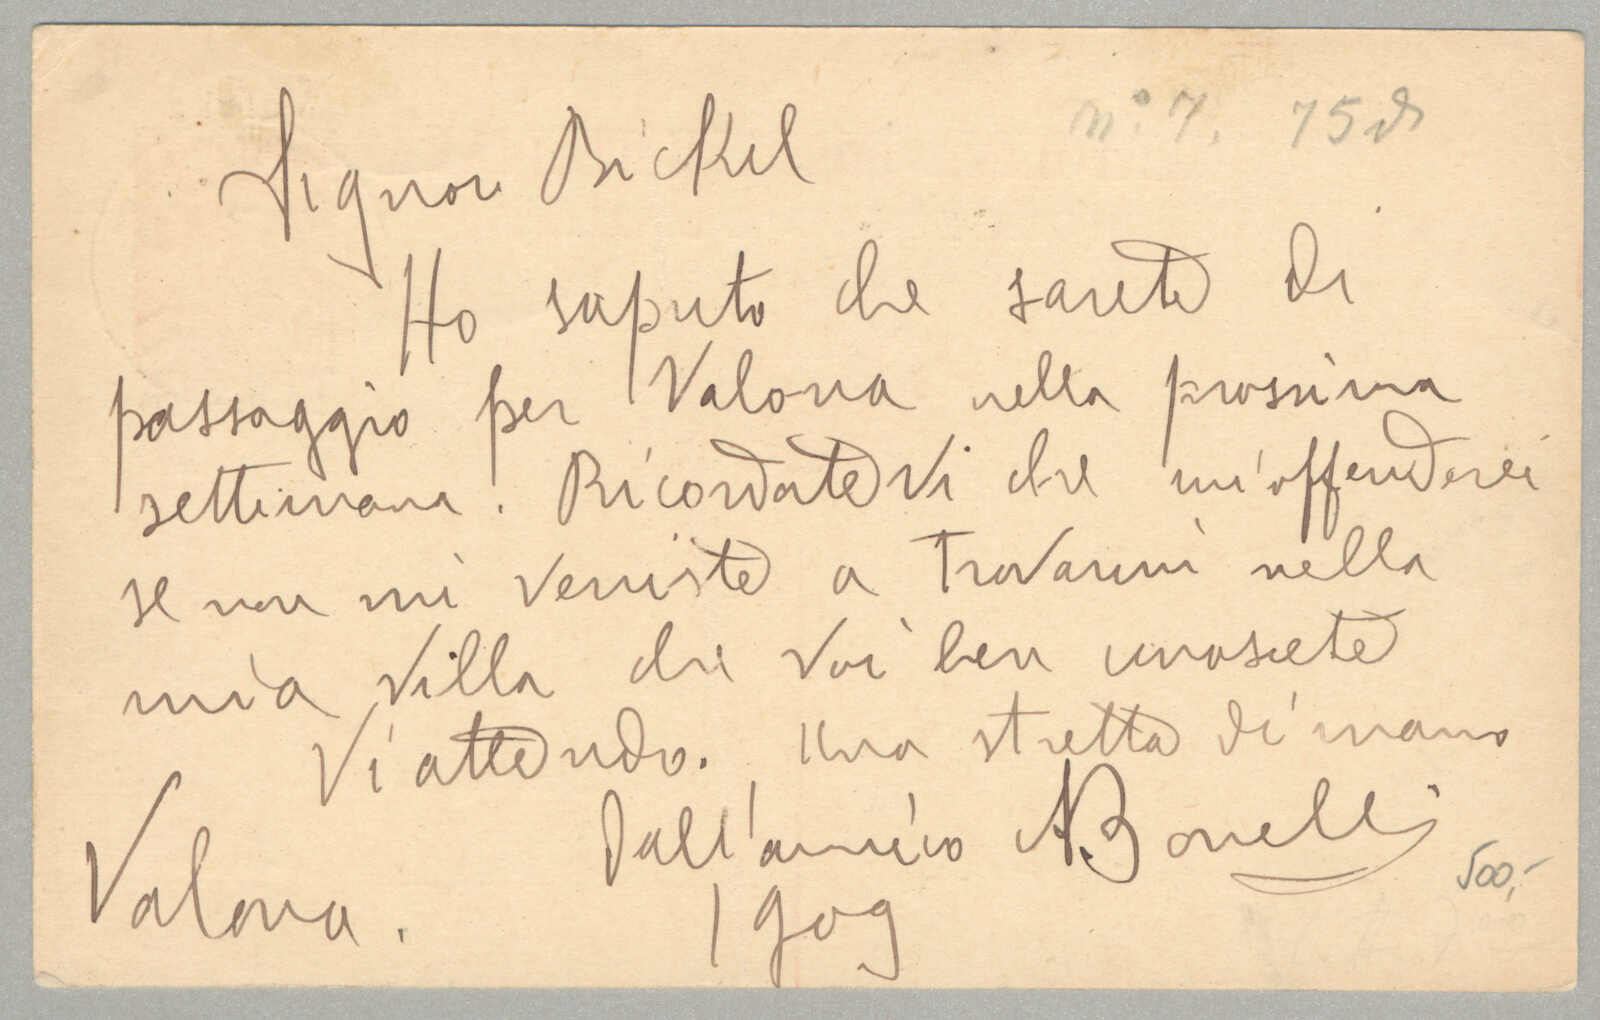 n° 7. 75 d
Signor Bickel
Ho saputo che sarete di
passaggio per Valona nella prossima
settimana. Ricordatevi che m'offenderei
se non mi veniste a trovarmi nella
mia villa che voi ben conoscete
Vi attendo. Una stretta di mano
Dall'amico ABonelli
500,-
Valona. 1909